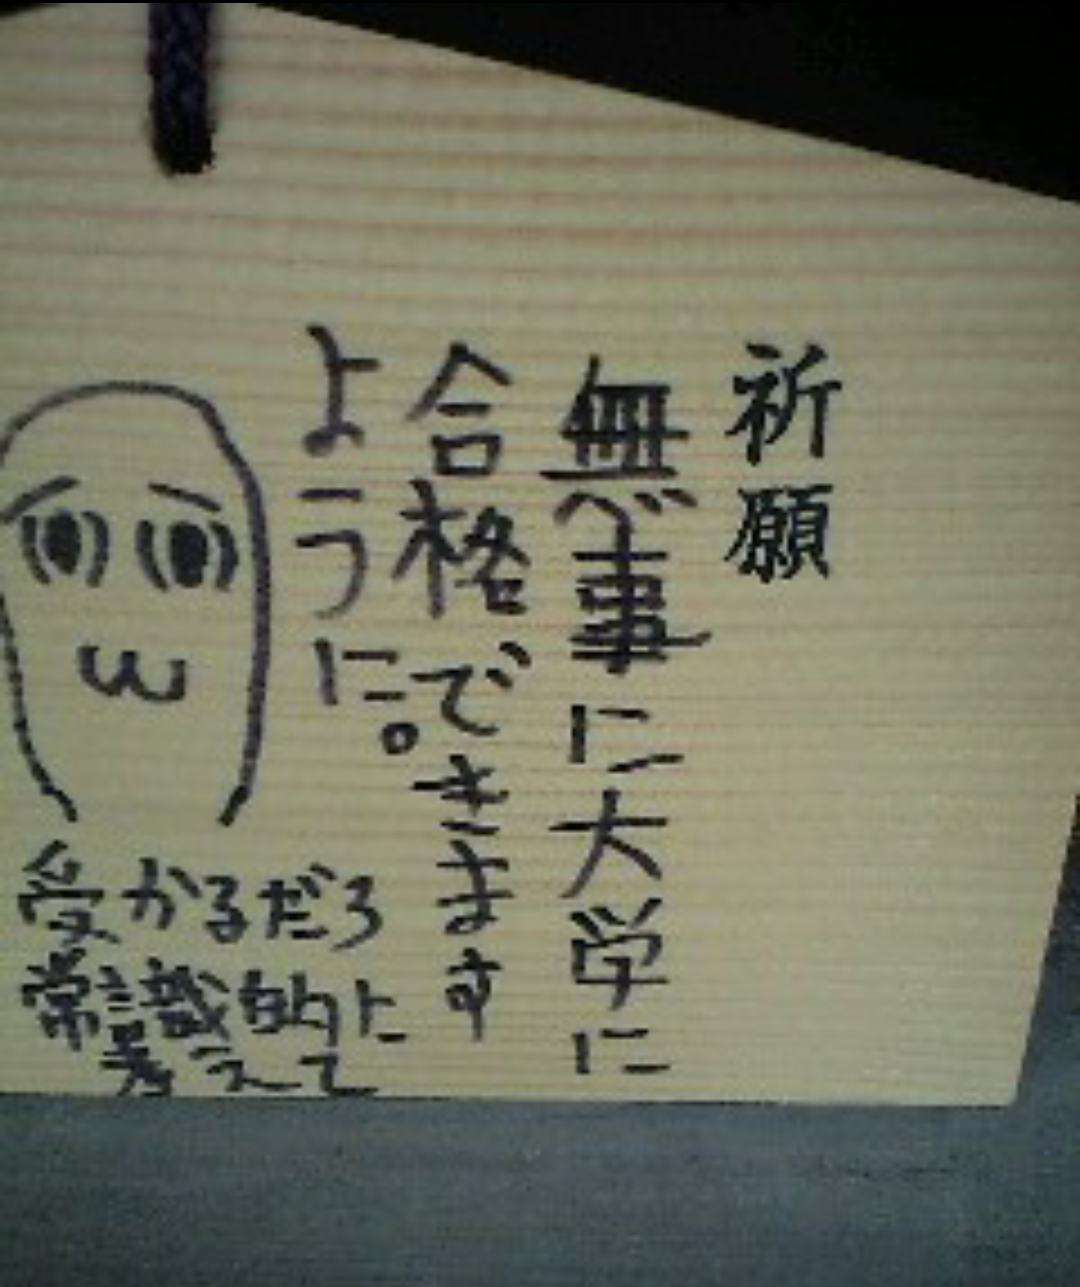 祈願
無事に大学に
合格できます
ように。
受かるだろ
常識的に
考えて